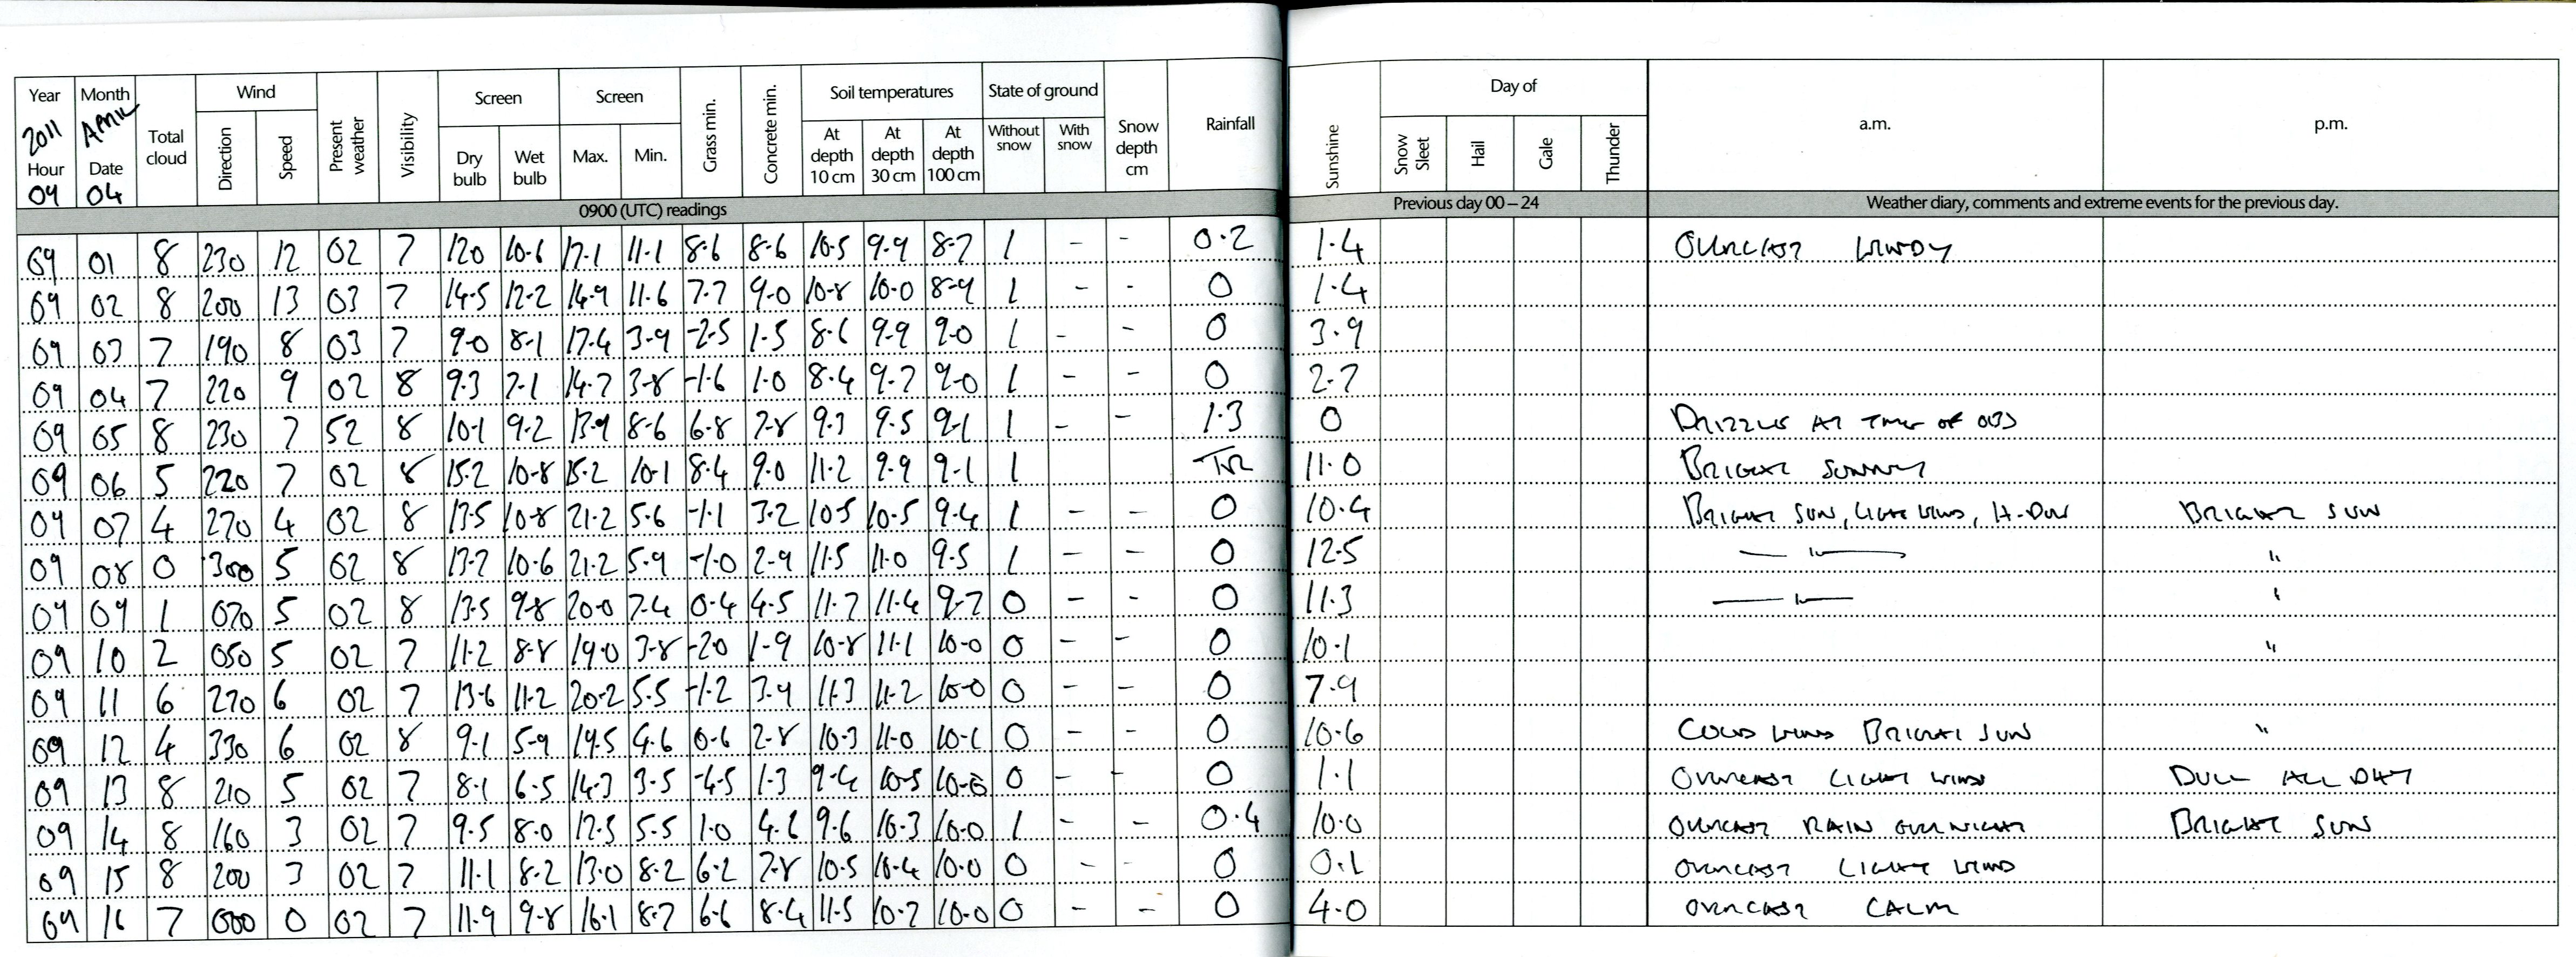 Year Month Total cloud Wind Present weather Visibility Screen Screen Grass min. Concrete min. Soil temperatures State of ground Snow depth cm Rainfall Sunshine Day of a.m. p.m.
2011 APRIL Direction Speed Dry bulb Wet bulb Max. Min. At depth 10 cm At depth 30 cm At depth 100 cm Without snow With snow Snow Sleet Hail Gale Thunder
Hour Date
09 04
0900 (UTC) readings Previous day 00 – 24 Weather diary, comments and extreme events for the previous day.
09 01 8 230 12 02 7 120 10.6 17.1 11.1 8.6 8.6 10.5 9.9 8.7 1 - - 0.2 1.4 OVERCAST WINDY
09 02 8 200 13 03 7 14.5 12.2 14.9 11.6 7.7 9.0 10.8 10.0 8.9 1 - - 0 1.4
09 03 7 190 8 03 7 9.0 8.1 17.4 3.9 -2.5 1.5 8.6 9.9 9.0 1 - - 0 3.9
09 04 7 220 9 02 8 9.3 7.1 14.7 3.8 -1.6 1.0 8.4 9.7 9.0 1 - - 0 2.7
09 05 8 230 7 52 8 10.1 9.2 13.9 8.6 6.8 7.8 9.3 9.5 9.1 1 - - 1.3 0 DRIZZLE AT TIME OF OBS
09 06 5 220 7 02 8 15.2 10.8 15.2 10.1 8.4 9.0 11.2 9.9 9.1 1 TR 11.0 BRIGHT SUNNY
09 07 4 270 4 02 8 13.5 10.8 21.2 5.6 -1.1 3.2 10.5 10.5 9.4 1 - - 0 10.4 BRIGHT SUN, LIGHT WIND, H-DEW BRIGHT SUN
09 08 0 300 5 02 8 13.7 10.6 21.2 5.9 -1.0 2.9 11.5 11.0 9.5 1 - - 0 12.5 — " — "
09 09 1 070 5 02 8 13.5 9.8 20.0 7.4 0.4 4.5 11.7 11.4 9.7 0 - - 0 11.3 — " — "
09 10 2 050 5 02 7 11.2 8.8 19.0 3.8 -2.0 1.9 10.8 11.1 10.0 0 - - 0 10.1 "
09 11 6 270 6 02 7 13.6 11.2 20.2 5.5 -1.2 3.9 11.3 11.2 10.0 0 - - 0 7.9
09 12 4 330 6 02 8 9.1 5.9 19.5 4.6 0.6 2.8 10.3 11.0 10.1 0 - - 0 10.6 COLD WIND BRIGHT SUN "
09 13 8 210 5 02 7 8.1 6.5 14.3 3.5 -4.5 1.3 9.4 10.5 0 - - 0 1.1 OVERCAST LIGHT WIND DULL ALL DAY
09 14 8 160 3 02 7 9.5 8.0 5.5 1.0 4.6 9.6 10.3 10.0 1 - - 0.4 10.0 OVERCAST RAIN OVERNIGHT BRIGHT SUN
09 15 8 200 3 02 7 11.1 8.2 13.0 8.2 6.2 7.8 10.5 10.4 10.0 0 - - 0 0.1 OVERCAST LIGHT WIND
09 16 7 000 0 02 7 11.9 9.8 16.1 8.7 6.6 8.4 11.5 10.7 10.0 0 - - 0 4.0 OVERCAST CALM